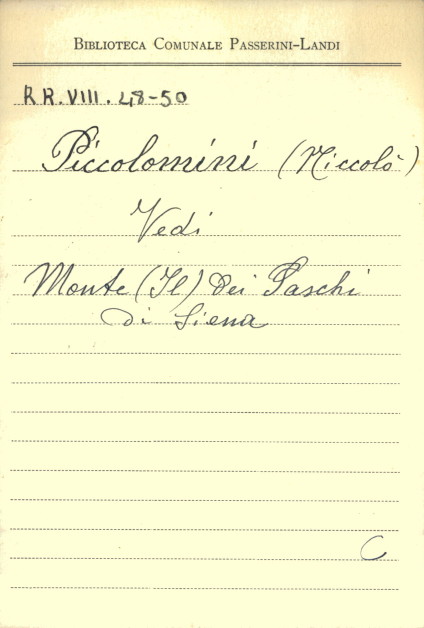 BIBLIOTECA COMUNALE PASSERINI-LANDI
RR.VIII.48-50
Piccolomini (Niccolò)
Vedi
Monte (Il) dei Paschi
di Siena
C